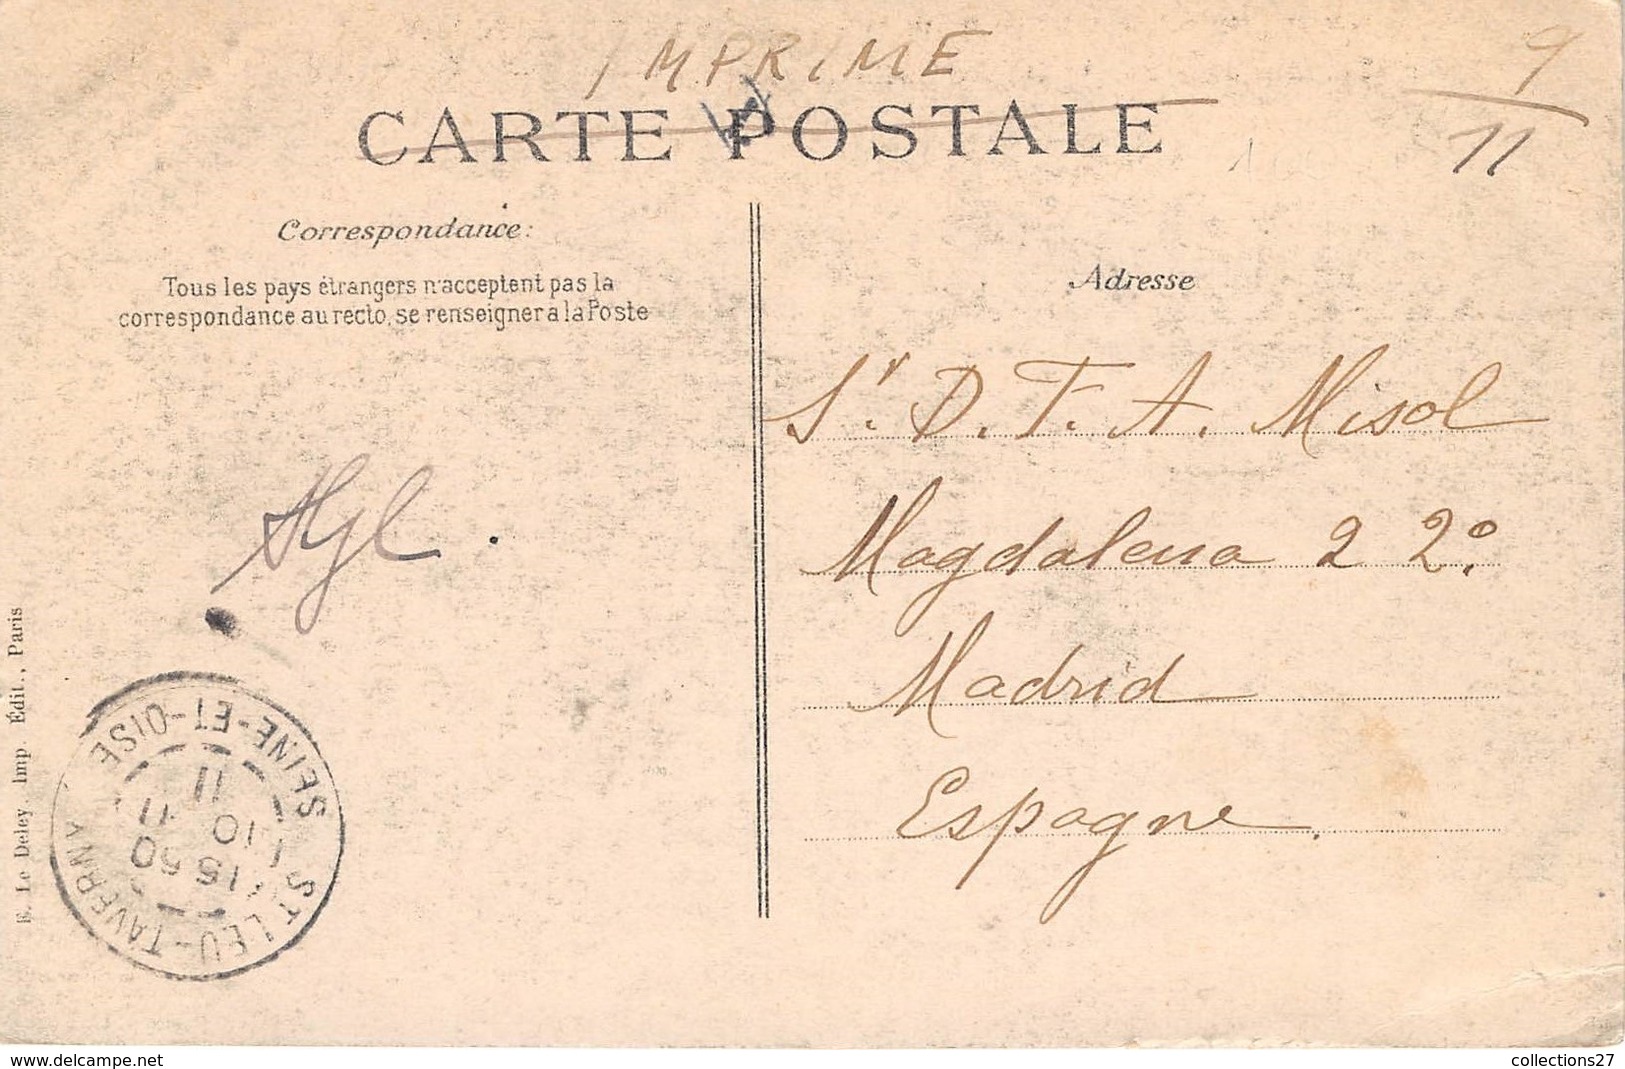 IMPRIME
CARTE POSTALE
9
11
Correspondance:
Tous les pays étrangers n'acceptent pas la
correspondance au recto, se renseigner à la Poste
Adresse
Sr. D. F. A. Misol
Magdalena 2 2º.
Madrid
Espagne.
E. Le Deley, Imp. Édit., Paris
ST LEU-TAVERNY
SEINE-ET-OISE
15 50
10 11
11
www.delcampe.net
collections27